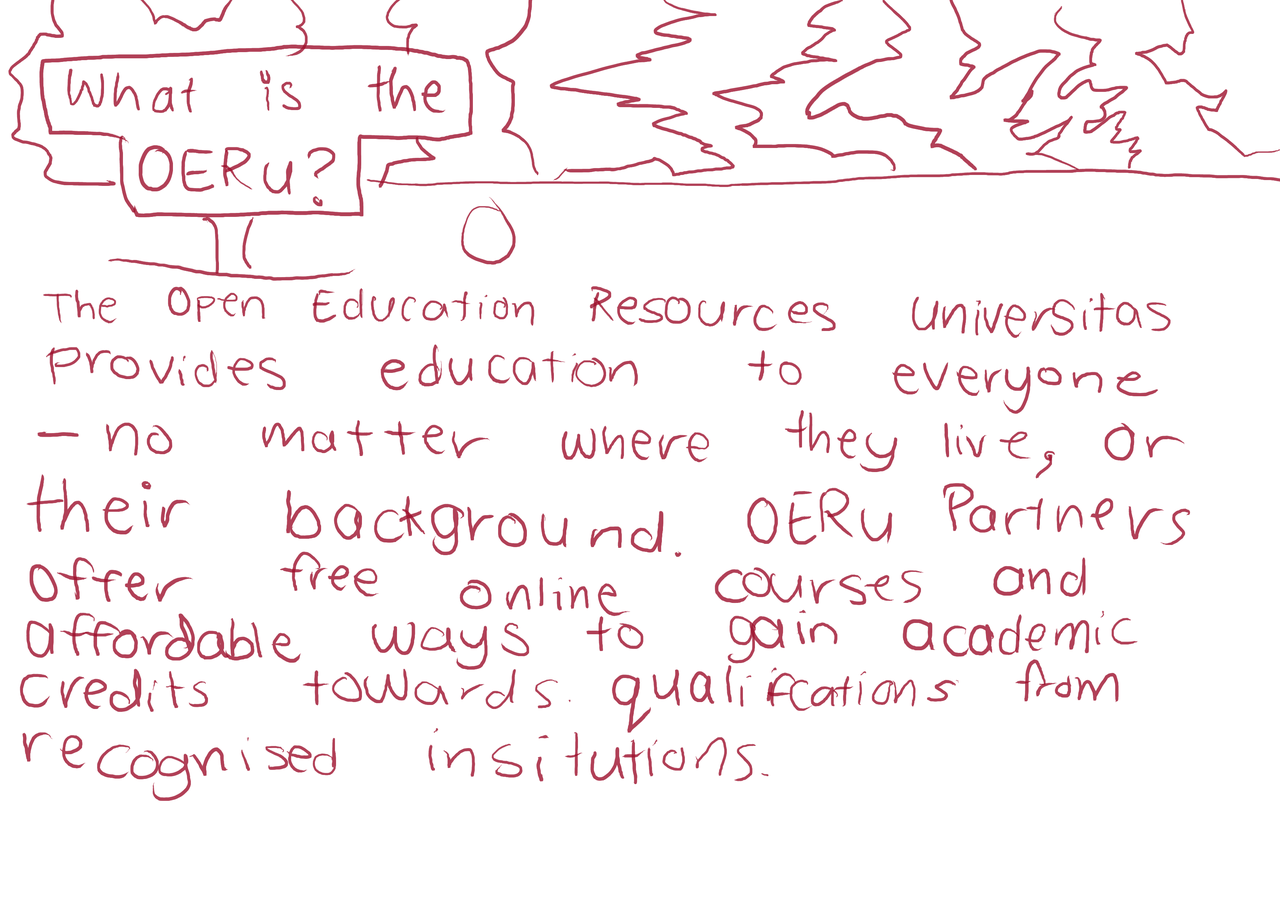 What is the
OERu?
The Open Education Resources universitas
provides education to everyone
– no matter where they live, or
their background. OERu Partners
offer free online courses and
affordable ways to gain academic
credits towards qualifications from
recognised insitutions.